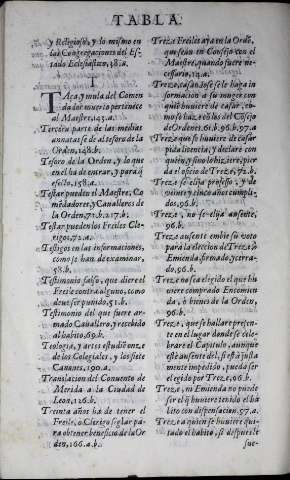 TABLA
y Religiosos, y lo mismo en
las Congregaciones del Es-
tado Eclesiastico, 38.a.
T
Tara, y mula del Comen
dador muerto pertenece
al Maestre, 143.a.
Tercera parte de las medias
annatas se dè al tesoro de la
Orden, 128.b.
Tesoro de la Orden, y lo que
en èl ha de entrar, y para q
efecto, 158.a.
Testar pueden el Maestre, Co
mēdadores, y Caualleros de
la Orden, 72.b. 217.b.
Testar pueden los Freiles Cle
rigos, 72.a.
Testigos en las informaciones,
como se han de examinar,
58.b.
Testimonio falso, que diere el
Freile contra alguno, como
deue ser punido, 51.b.
Testimonio del que fuere ar-
mado Cauallero, y recebido
al habito, 69.b.
Teologia, y artes estudiōenze
de los Colegiales, y los siete
Canones, 190.a.
Translacion del Conuento de
Merida a la Ciudad de
Leon, 126.b.
Treinta años ha de tener el
Freile, o Clerigo seglar pa-
ra obtener beneficio de la Or
den, 166.a.b.
Treze Freiles aya en la Ordē,
que seàn en Consejo con el
Maestre, quando fuere ne-
cessario, 13.a.
Treze, casandose se le haga in
formacion a su muger con
quiē huuiere de casar, co-
mo se haze con los del Consejo
de Ordenes, 61.b. 96.b. 97.a
Treze que se huuiere de casar
pida licencia, y declare con
quiē, y sino lo hiziere, pier
da el oficio de Treze, 61.b.
Treze, sea professo, y de
veinte y cinco años cumpli-
dos, 96.b.
Treze, no se elija ausente,
96.b.
Treze ausente embie su voto
para la eleccion de Treze, ò
Emienda firmado, y cerra-
do, 96.b.
Treze no sea elegido el que hu
uiere comprado Encomien
da, ò bienes de la Orden,
96.b.
Treze, que se hallare presen-
te en el lugar donde se cele-
brare el Capitulo, aunque
estè ausente dèl, si està justa
mente impedido, pueda ser
elegido por Treze, 96.b.
Treze, ni Emienda no puede
ser el q̄ huuiere tenido el ha
bito con dispensacion, 97.a.
Treze a quien se huuiere qui-
tado el habito, si despues se
fue-